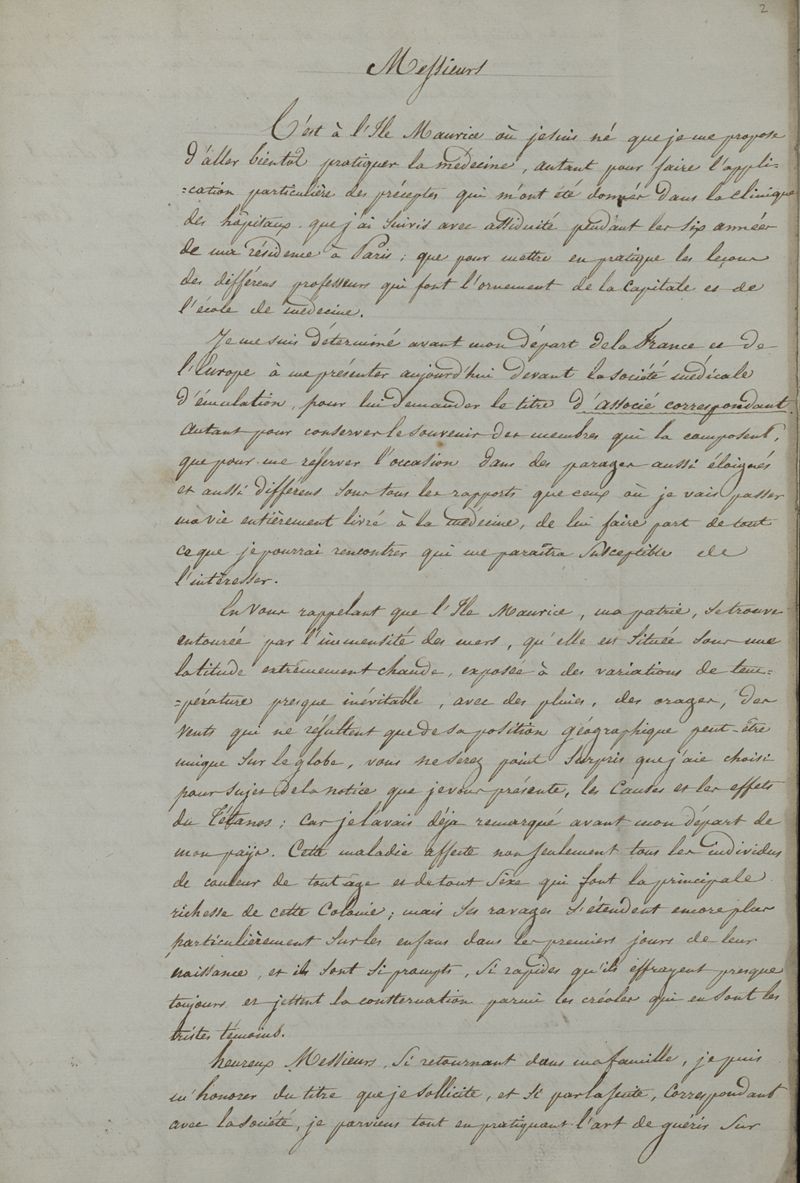 2
Messieurs
C'est à l'Ile Maurice où je suis né que je me propose
d'aller bientôt pratiquer la médecine, autant pour faire l'appli=
=cation particulière des préceptes qui m'ont été donnés dans la clinique
des hôpitaux que j'ai suivis avec assiduité pendant les six années
de ma résidence à Paris; que pour mettre en pratique les leçons
des différens professeurs qui font l'ornement de la Capitale et de
l'école de médecine.
Je me suis déterminé avant mon départ de la France et de
l'Europe à me présenter aujourd'hui devant la société médicale
d'émulation, pour lui demander le titre d'associé correspondant.
autant pour conserver le souvenir des membres qui la composent,
que pour me réserver l'occasion dans des parages aussi éloignés
et aussi différens sous tous les rapports que ceux où je vais passer
ma vie entièrement livré à la médecine, de lui faire part de tout
ce que je pourrai rencontrer qui me paraîtra susceptible de
l'intéresser.
En vous rappelant que l'Ile Maurice, ma patrie, se trouve
entourée par l'immensité des mers, qu'elle est située sous une
latitude extrêmement chaude, exposée à des variations de tem=
=pérature presque inévitable, avec des pluies, des orages, des
vents qui ne résultent que de sa position géographique peut-être
unique sur le globe, vous ne serez point surpris que j'aie choisi
pour sujet de la notice que je vous présente, les causes et les effets
du Tétanos; car je l'avais déja remarqué avant mon départ de
mon pays. Cette maladie affecte non seulement tous les individus
de couleur de tout âge et de tout sexe qui font la principale
richesse de cette Colonie; mais ses ravages s'étendent encore plus
particulièrement sur les enfans dans les premiers jours de leur
naissance, et ils sont si prompts, si rapides qu'ils effrayent presque
toujours et jettent la consternation parmi les créoles qui en sont les
tristes témoins.
heureux Messieurs, si retournant dans ma famille, je puis
m'honorer du titre que je sollicite, et si par la suite, correspondant
avec la société, je parviens tout en pratiquant l'art de guérir sur